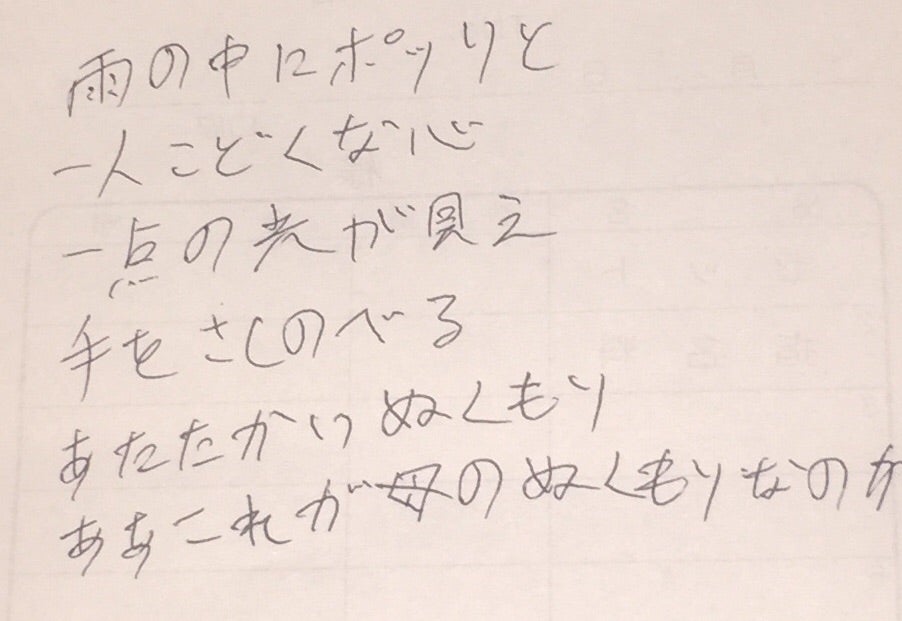 雨の中にポツリと
一人こどくな心
一点の光が見え
手をさしのべる
あたたかいぬくもり
ああこれが母のぬくもりなのか